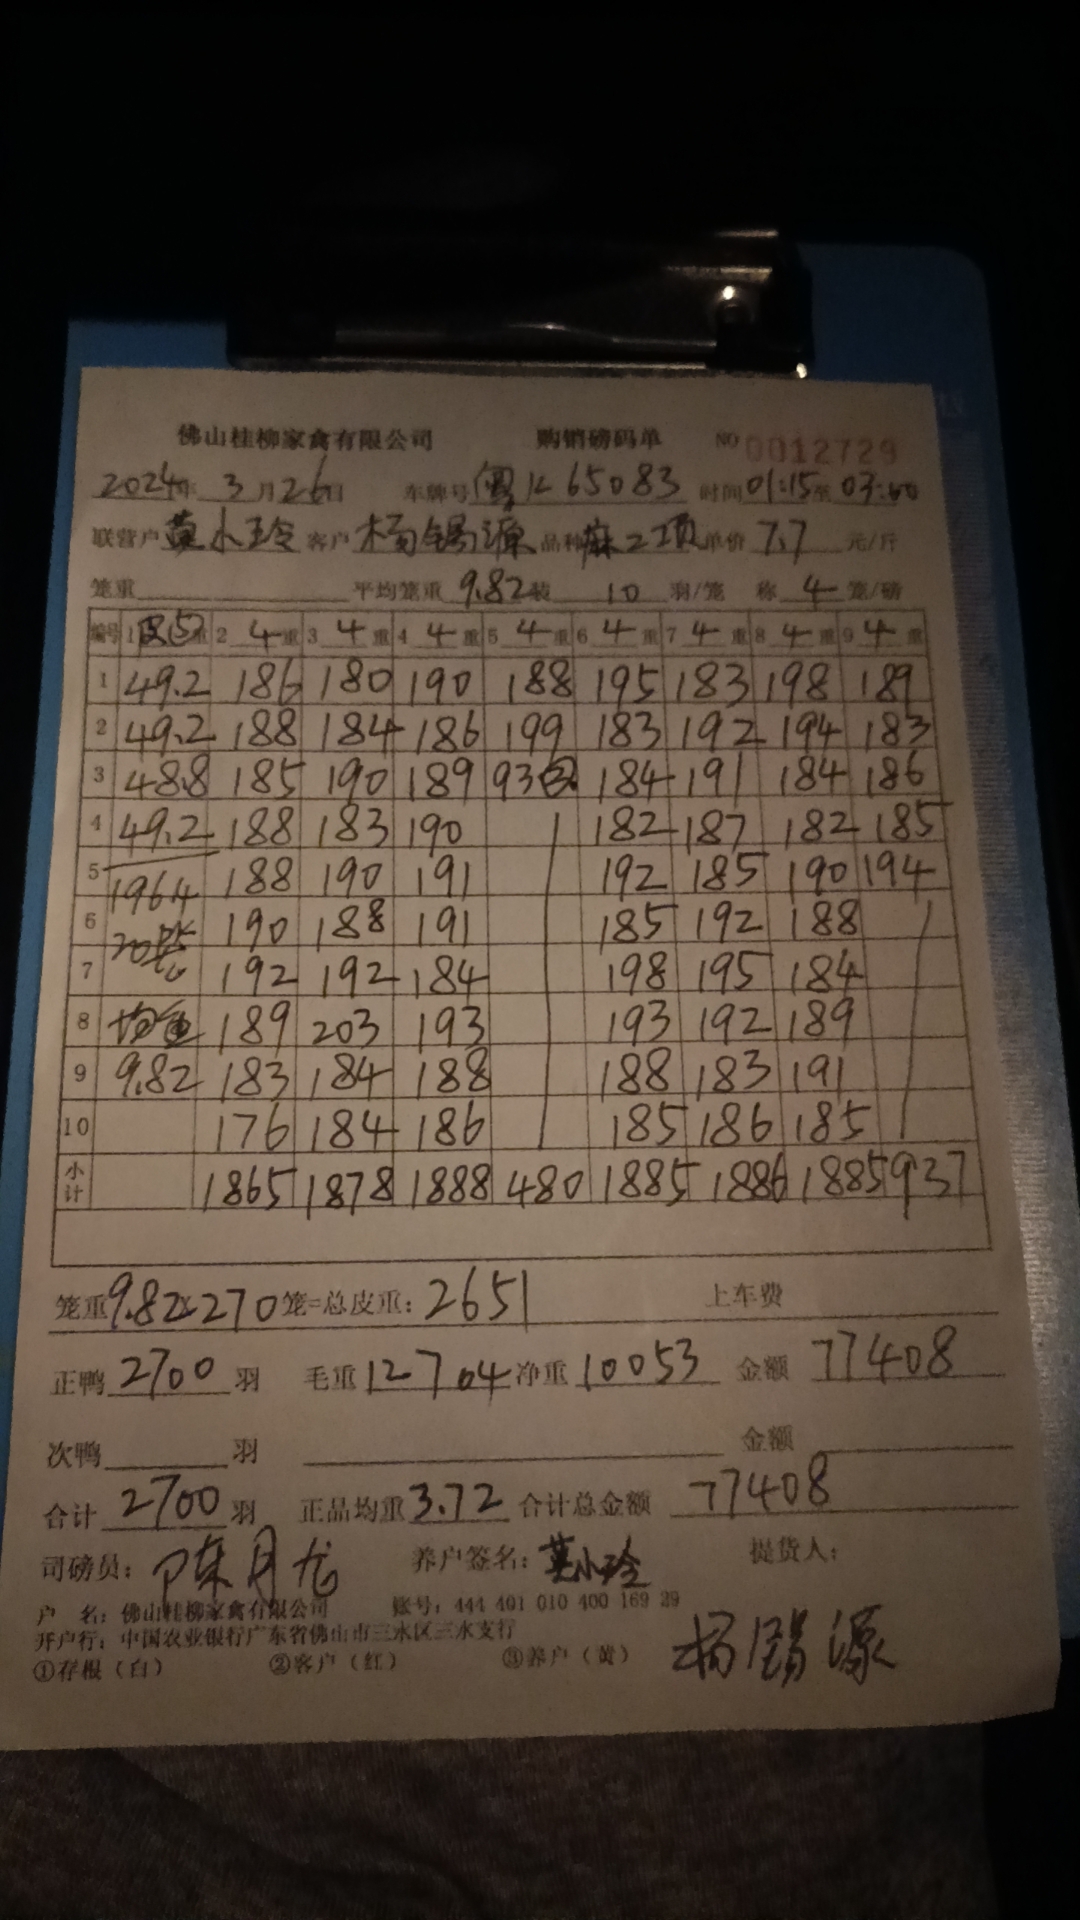 佛山桂柳家禽有限公司 购销磅码单 NO 0012729
2024年 3月26日 车牌号 粤K65083 时间 01:15至03:00
联营户 莫小玲 客户 杨锡源 品种 麻二项 单价 7.7 元/斤
笼重 平均笼重 9.82 装 10 羽/笼 称 4 笼/磅
编号 1 皮⑤重 2 4 重 3 4 重 4 4 重 5 4 重 6 4 重 7 4 重 8 4 重 9 4 重
1 49.2 186 180 190 188 195 183 198 189
2 49.2 188 184 186 199 183 192 194 183
3 48.8 185 190 189 93② 184 191 184 186
4 49.2 188 183 190 182 187 182 185
5 196.4 188 190 191 192 185 190 194
6 190 188 191 185 192 188
7 20 192 192 184 198 195 184
8 均重 189 203 193 193 192 189
9 9.82 183 184 188 188 183 191
10 176 184 186 185 186 185
小计 1865 1878 1888 480 1885 1886 1885 937
笼重 9.82×270 笼=总皮重: 2651 上车费
正鸭 2700 羽 毛重 12704 净重 10053 金额 77408
次鸭 羽 金额
合计 2700 羽 正品均重 3.72 合计总金额 77408
司磅员: 陈月龙 养户签名: 莫小玲 提货人:
杨锡源
户 名: 佛山桂柳家禽有限公司 账号: 444 401 010 400 169 29
开户行: 中国农业银行广东省佛山市三水区三水支行
①存根（白） ②客户（红） ③养户（黄）